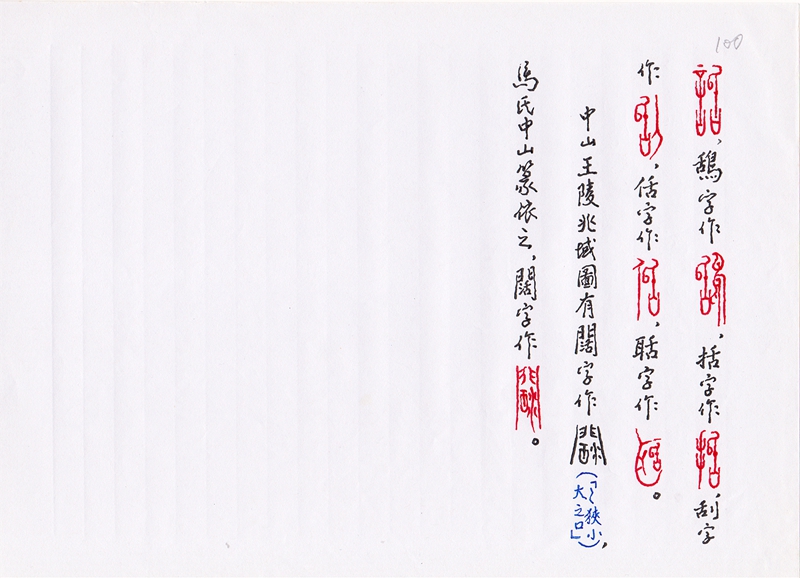 100
，鴰字作，括字作刮字
作，佸字作，聒字作。
中山王陵兆域圖有闊字作(「〻狹小大之口」)，
馬氏中山篆依之，闊字作。